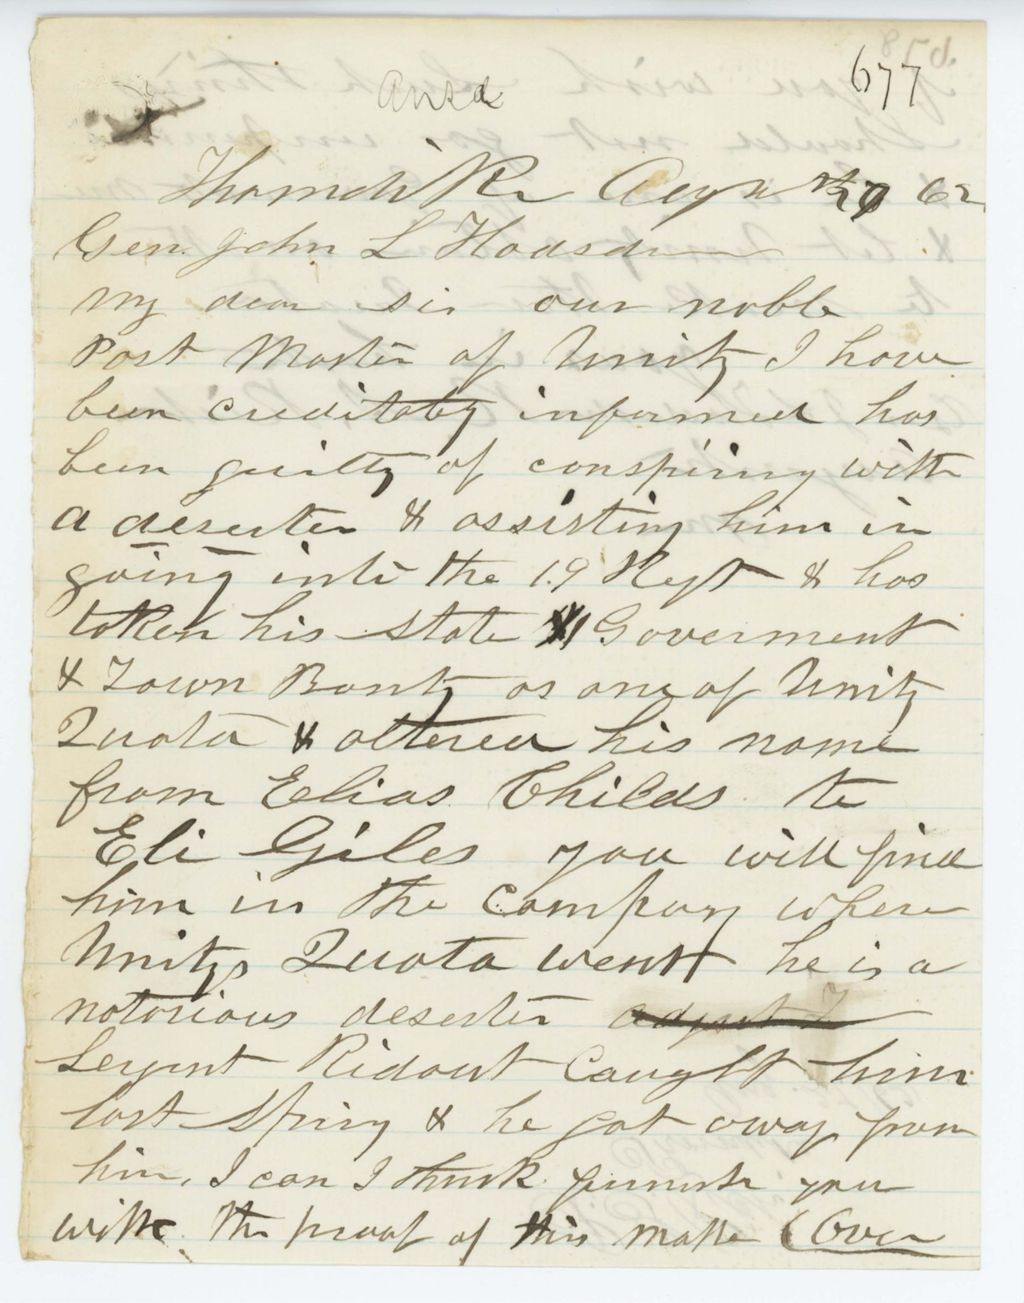 677
ansd
Thorndike Aug 29 62
Gen. John L Hodsdon
My dear sir our noble
Post Master of Unity I have
been creditably informed has
been guilty of conspiring with
a deserter & assisting him in
going into the 19 Regt & has
taken his State Goverment
& Town Bounty as one of Unity
Quota & altered his name
from Elias Childs to
Eli Giles you will find
him in the Company where
Unitys Quota went he is a
notorious deserter
Sergent Ridout Caught him
last Spring & he got away from
him, I can I think furnish you
with the proof of this matter (Over